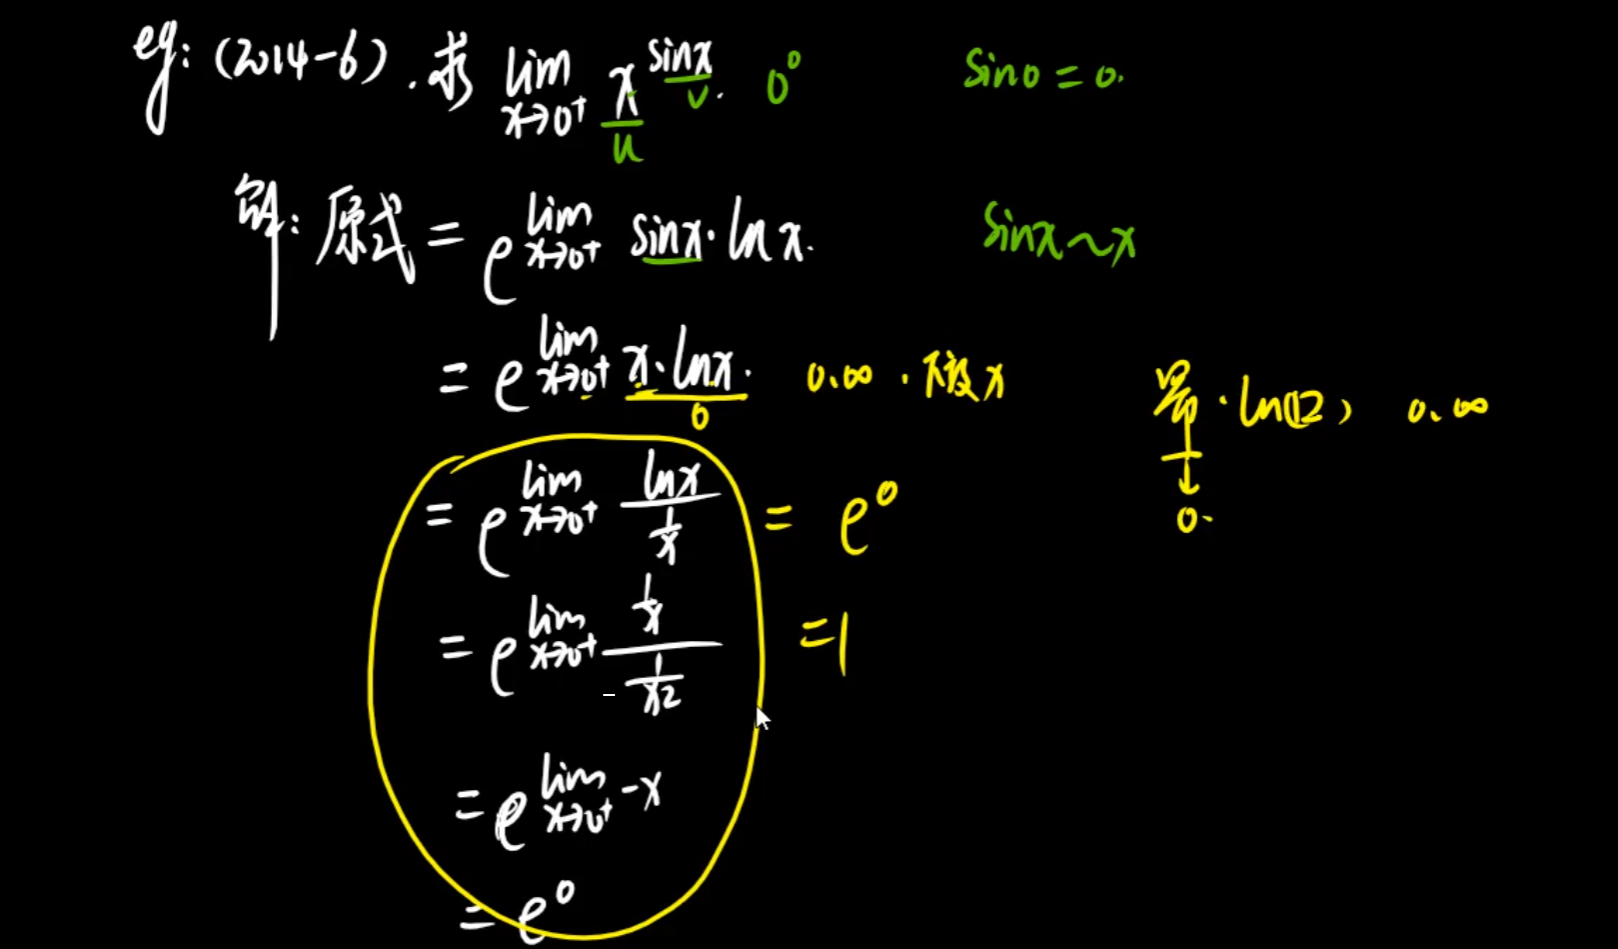 eg: (2014-6). 求 lim x→0⁺ x^sinx. 0⁰ sin0 = 0.
u v
解: 原式 = e^lim x→0⁺ sinx·lnx. sinx~x
= e^lim x→0⁺ x·lnx. 0·∞. 下放x 幂·ln(12) 0·∞
0
= e^lim x→0⁺ lnx/(1/x) = e⁰ 0.
= e^lim x→0⁺ (1/x)/(-1/x²) = 1
= e^lim x→0⁺ -x
= e⁰